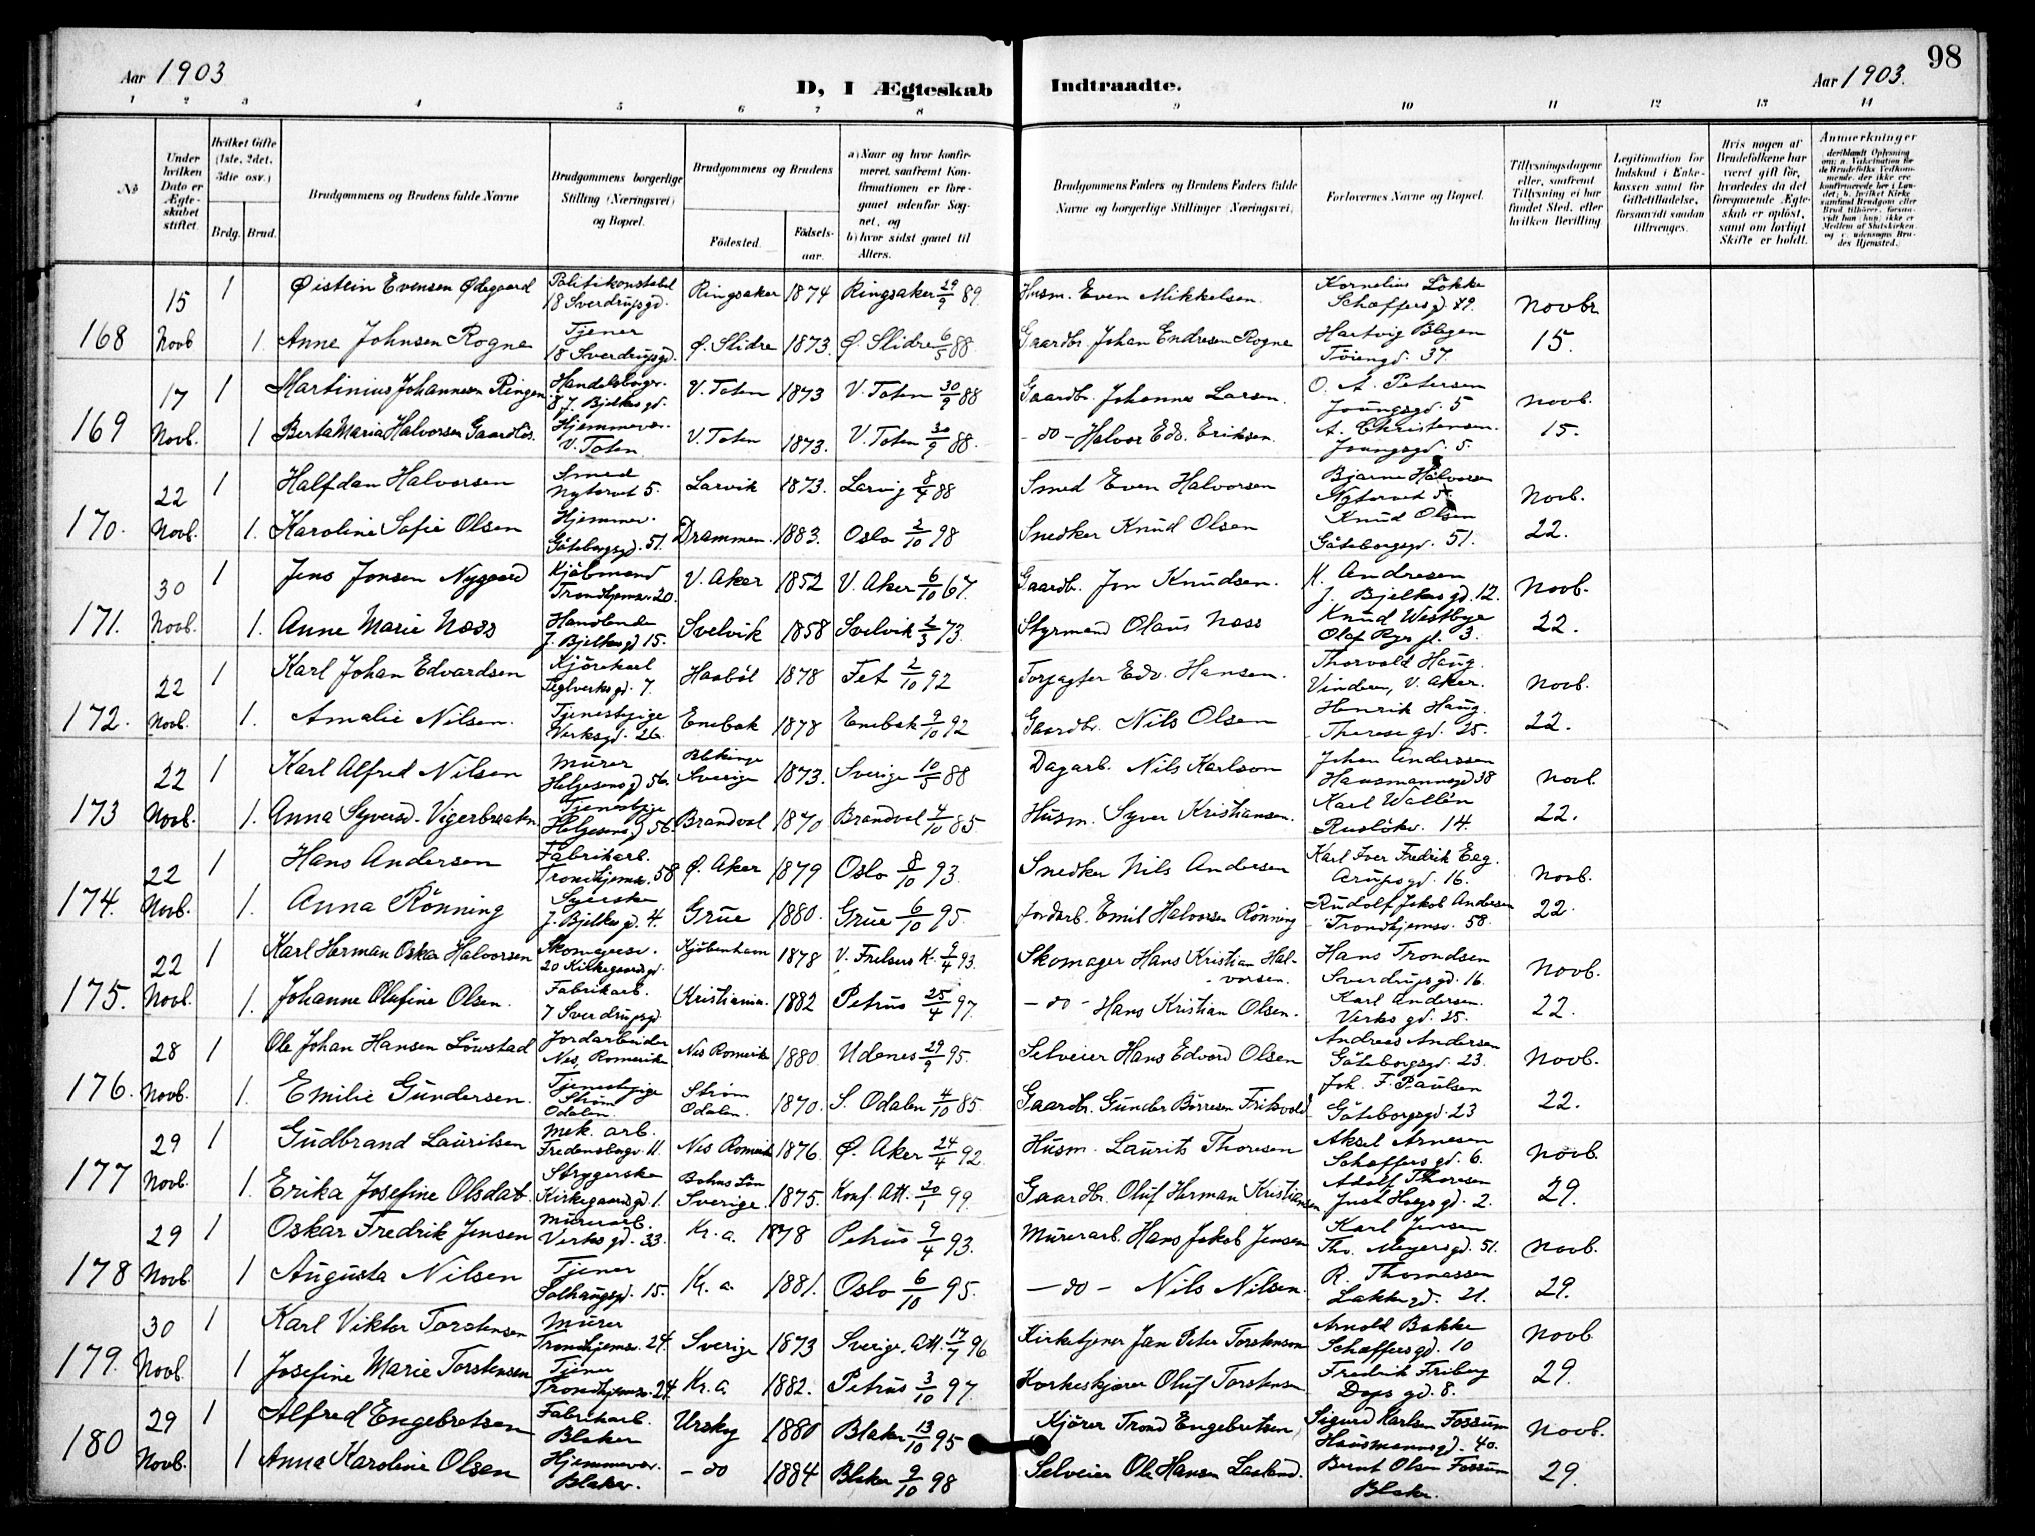 98
Aar 1903
D, I Ægteskab Indtraadte.
Aar 1903.
1 2 3 4 5 6 7 8 9 10 11 12 13 14
No
Under hvilken Dato er Ægteskabet stiftet.
Hvilket Gifte (1ste, 2det, 3die osv.)
Brdg. Brud.
Brudgommens og Brudens fulde Navne
Brudgommens borgerlige Stilling (Næringsvei) og Bopæl.
Brudgommens og Brudens
Fødested. Fødsels-aar.
a) Naar og hvor konfirmeret, saafremt Konfirmationen er foregaaet udenfor Sognet, og
b) hvor sidst gaaet til Alters.
Brudgommens Faders og Brudens Faders fulde Navne og borgerlige Stillinger (Næringsvei)
Forlovernes Navne og Bopæl.
Tillysningsdagene eller, saafremt Tillysning ei har fundet Sted, efter hvilken Bevilling
Legitimation for Indskud i Enkekassen samt for Giftetilladelse, forsaavidt saadan tiltrænges.
Hvis nogen af Brudefolkene har været gift før, hvorledes da det foregaaende Ægteskab er opløst, samt om lovligt Skifte er holdt.
Anmerkninger
168 15 Novb 1 Øistein Evensen Ødegaard Politikonstabel 18 Sverdrupsgd. Ringsaker 1874 Ringsaker 29/9 89. Husm. Even Mikkelsen. Kornelius Løkke Schæffersgd. 19. Novbr
1. Anne Johnsen Rogne Tjener 18 Sverdrupsgd. Ø. Slidre 1873. Ø. Slidre 6/5 88 Gaardbr. Johan Endresen Rogne Hartvig Tøiengd. 37. 15.
169 17 Novb. 1 Martinius Johannesen Ringen Handelsbogh. 8 J. Bjelkesgd. V. Toten 1873 V. Toten 30/9 88 Gaardbr. Johannes Larsen. O. A. Petersen Youngsgd. 5 Novb.
1 Berta Maria Halvorsen Gaardløs. Hjemmevær. V. Toten V. Toten 1873. V. Toten 30/9 88. - do - Halvor Edv. Eriksen. A. Christensen. Youngsgd. 5. 15.
170. 22 Novb. 1 Halfdan Halvorsen Smed Nytorvet 5. Larvik 1873. Larvig 8/4 88 Smed Even Halvorsen Bjarne Halvorsen Nytorvet 5. Novb.
1. Karoline Sofie Olsen Hjemmev. Göteborgsgd. 51. Drammen. 1883. Oslo 2/10 98 Snedker Knud Olsen Knud Olsen Göteborgsgd. 51. 22.
171. 30 Novb. 1 Jens Jonsen Nygaard Kjøbmand Trondhjemsv. 20. V. Aker 1852 V. Aker 6/10 67. Gaardbr. Jon Knudsen. K. Andresen J. Bjelkesgd. 12. Novb.
1. Anne Marie Næss Handlende J. Bjelkesgd 15. Svelvik 1858 Svelvik 2/3 73. Styrmand Olaus Næss Knud Westbye Olaf Ryes pl. 3. 22.
172. 22 Novb. 1 Karl Johan Edvardsen Kjørekarl Teglverksgd. 7. Haabøl 1878 Fet 2/10 92 Forpagter Edv. Hansen. Thorvald Haug. Vinderen, V. Aker. Novb.
1. Amalie Nilsen. Tjenestpige Verksgd. 26. Enebak 1878 Enebak 9/10 92 Gaardbr. Nils Olsen Henrik Haug. Theresegd. 25. 22.
173 22 Novb. 1 Karl Alfred Nilsen Murer Helgesensgd 56. Blekinge Sverige 1873. Sverige 10/5 88 Dagarb. Nils Karlson Johan Anderssen Hausmannsgd 38 Novb.
1. Anna Syversd. Vigerbraaten Tjenestpige Helgesensgd 56. Brandval 1870 Brandval 4/10 85 Husm. Syver Kristiansen. Karl Wallén Rusløkv. 14. 22.
174. 22 Novb. 1 Hans Andersen Fabrikarb. Trondhjemsv. 58 Ø. Aker 1879 Oslo 8/10 93. Snedker Nils Andersen Karl Iver Fredrik Eeg. Arupsgd. 16. Novb.
1. Anna Rönning Syerske J. Bjelkesgd. 4. Grue 1880. Grue 6/10 95. Jordarb. Emil Halvorsen Rönning Rudolf Jakob Andersen Trondhjemsv. 58. 22.
175. 22 Novb. 1 Karl Herman Oskar Halvorsen Skomagersv. 20 Kirkegaardsgd. Kjøbenhavn 1878 V. Frelsers K. 9/4 93. Skomager Hans Kristian Halvorsen. Hans Trondsen Sverdrupsgd. 16. Novb.
1. Johanne Olufine Olsen. Fabrikarb. 7 Sverdrupsgd. Kristiania. 1882 Petrus 25/4 97. - do - Hans Kristian Olsen. Karl Andersen. Verksgd. 25. 22.
176. 28 Novb. 1 Ole Johan Hansen Löwstad Jordarbeider Nes, Romerike Nes Romerike 1880. Udenes 29/9 95. Selveier Hans Edvard Olsen Andreas Andersen Göteborgsgd. 23. Novb.
1. Emilie Gundersen. Tjenestpige Strøm Odalen. Strøm Odalen. 1870. S. Odalen 4/10 85. Gaardbr. Gunder Börresen Joh. F. Paulsen Göteborgsgd. 23 22.
177 29 Novb. 1 Gudbrand Lauritsen Mek. arb. Fredensborgv. 11. Nes Romerik 1876. Ø. Aker 24/4 92. Husm. Laurits Thoresen Aksel Arnesen Schæffersgd. 6. Novb.
1. Erika Josefine Olsdat. Strygerske Kirkegaardsgd. 1. Bohus Län Sverige. 1875. Konf. Att. 20/1 99. Gaardbr. Oluf Herman Kristiansen Adolf Thoresen Just Hoegsgd. 2. 29.
178 29 Novb. 1 Oskar Fredrik Jensen Murerarb. Verksgd. 33. Kr. a. 1878 Petrus 9/4 93. Murerarb. Hans Jakob Jensen Karl Jensen Thv. Meyersgd. 51. Novb.
1 Augusta Nilsen Tjener Solhaugsgd. 15. Kr. a. 1881. Oslo 6/10 95. - do - Nils Nilsen. R. Thomassen Lakkegd. 21. 29.
179. 30 Novb. 1 Karl Viktor Torstensen Murer Trondhjemsv. 24. Sverige 1873 Sverige, Att. 17/7 96 Kirketjener Jan Peter Torstenson Arnold Bakke Schæffersgd. 10 Novb.
1 Josefine Marie Torstensen Tjener Trondhjemsv. 24 Kr. a. 1882. Petrus 3/10 97. Korkeskjærer Oluf Torstensen Fredrik Friberg Dopsgd. 8. 29.
180 29 Novb. 1 Alfred Engebretsen Fabrikarb. Blaker Urskog 1880 Blaker 13/10 95 Kjører Trond Engebretsen Sigurd Karlsen Fossum Hausmannsgd. 40. Novb.
1 Anna Karoline Olsen Hjemmevær. Blaker. - do 1884 Blaker 9/10 98 Selveier Ole Hansen Bernt Olsen Fossum Blaker. 29.